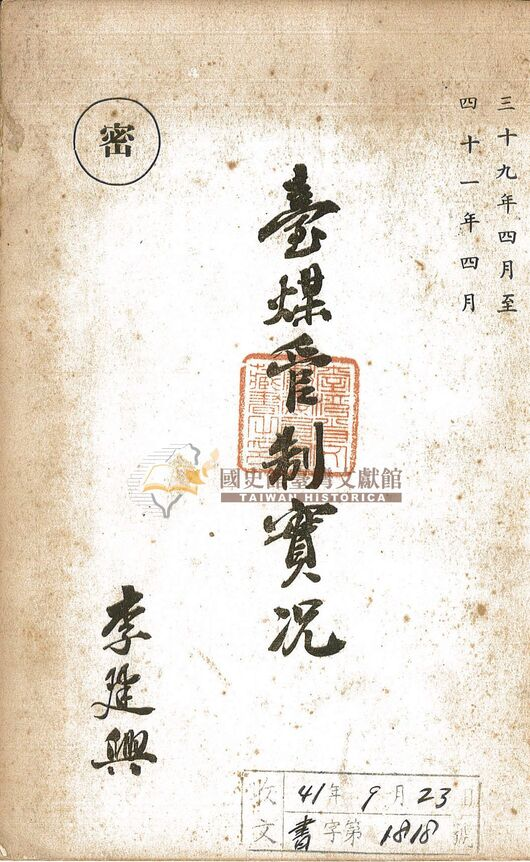 三十九年四月至
四十一年四月
密
臺煤管制實況
國史館臺灣文獻館
TAIWAN HISTORICA
李建興
收 41年9月23日
文 書字第1818號